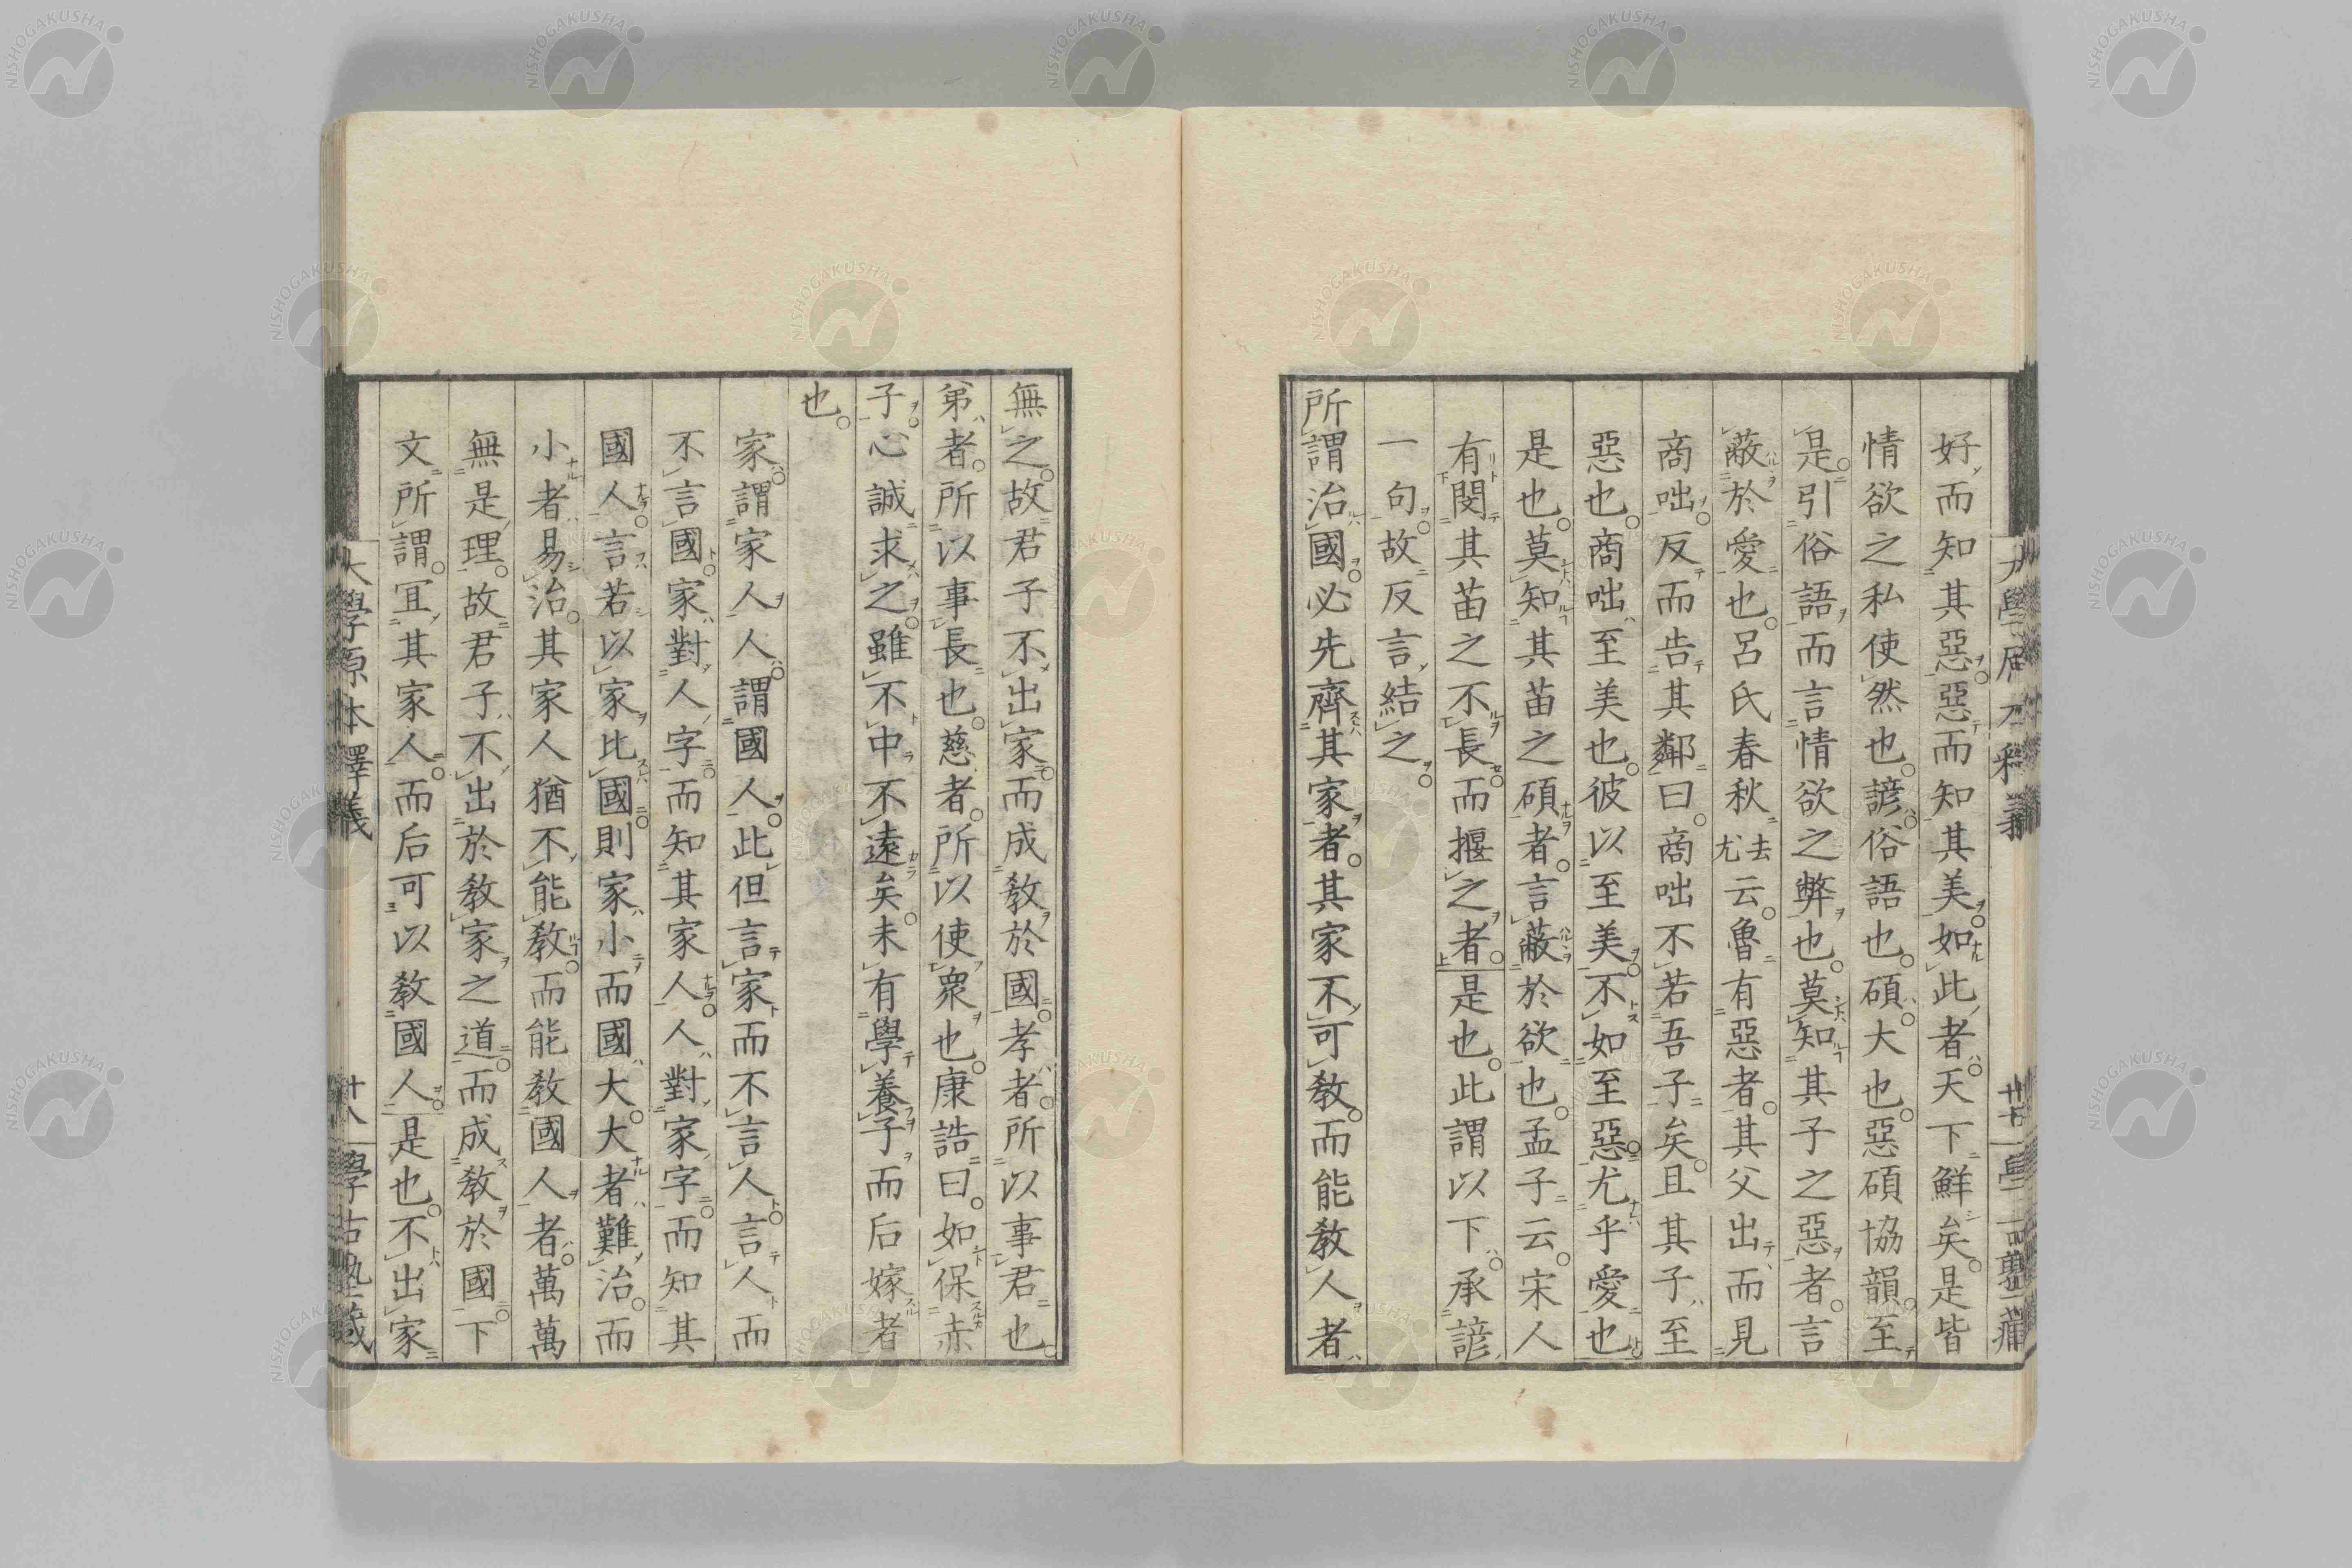 好而知其惡惡而知其美如此者天下鮮矣是皆
情欲之私使然也諺俗語也碩大也惡碩協韻至
是引俗語而言情欲之弊也莫知其子之惡者言
蔽於愛也呂氏春秋去尤云魯有惡者其父出而見
商咄反而告其鄰曰商咄不若吾子矣且其子至
惡也商咄至美也彼以至美不如至惡尤乎愛也
是也莫知其苗之碩者言蔽於欲也孟子云宋人
有閔其苗之不長而揠之者是也此謂以下承諺
一句故反言結之
所謂治國必先齊其家者其家不可教而能教人者
無之故君子不出家而成教於國孝者所以事君也
弟者所以事長也慈者所以使衆也康誥曰如保赤
子心誠求之雖不中不遠矣未有學養子而后嫁者
也
家謂家人人謂國人此但言家而不言人言人而
不言國家對人字而知其家人人對家字而知其
國人言若以家比國則家小而國大大者難治而
小者易治其家人猶不能教而能教國人者萬萬
無是理故君子不出於教家之道而成教於國下
文所謂宜其家人而后可以教國人是也不出家
大學原本釋義
十八
學古塾藏
NISHOGAKUSHA